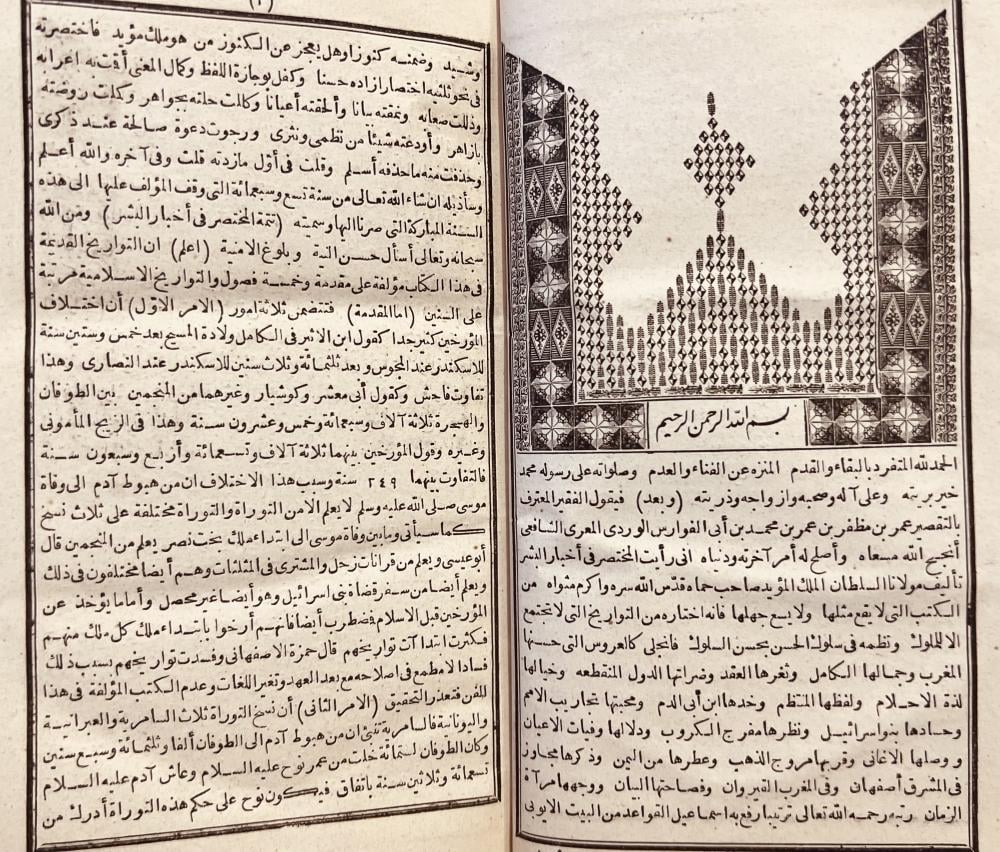 بسم الله الرحمن الرحيم
الحمد لله المتفرد بالبقاء والقدم المنزه عن الفناء والعدم وصلواته على رسوله محمد
خير بريته وعلى آله وصحبه وازواجه وذريته (وبعد) فيقول الفقير المعترف
بالتقصير عمر بن مظفر بن عمر بن محمد بن أبى الفوارس الوردى المعرى الشافعى
أنجح الله مسعاه وأصلح له أمر آخرته ودنياه انى رأيت المختصر فى أخبار البشر
تأليف مولانا السلطان الملك المؤيد صاحب حماه قدس الله سره واكرم مثواه من
الكتب التى لا يقع مثلها ولا يسع جهلها فانه اختاره من التواريخ التى لا تجتمع
الا للملوك ونظمه فى سلوك الحسن بحسن السلوك فانجلى كالعروس التى حسنها
المغرب وجمالها الكامل وثغرها العقد وضراتها الدول المنقطعه وخيالها
لذة الاحلام ولفظها المنتظم وخدها ابن أبى الدم ومحبتها تجاريب الامم
وحسادها بنو اسرائيل ونظرها مفرج الكروب ودلالها وفيات الاعيان
ووصلها الاغانى وقربها مروج الذهب وعطرها من اليمن وذكرها مجاوز
فى المشرق أصفهان وفى المغرب القيروان وفصاحتها البيان ووجهها مرآة
الزمان رتبه رحمه الله تعالى ترتيبا رفع به اسماعيل القواعد من البيت الايوبى
(٣)
وشيد وضمنه كنوزا وهل يعجز عن الكنوز من هو ملك مؤيد فاختصرته
فى نحو ثلثيه اختصارا زاده حسنا وكفل بوجازة اللفظ وكمال المعنى أقمت به اعرابه
وذللت صعابه ونمقته بيانا وألحقته أعيانا وكللت حلته بجواهر وكملت روضته
بازاهر وأودعته شيئا من نظمى ونثرى ورجوت دعوة صالحة عند ذكرى
وحذفت منه ما حذفه أسلم وقلت فى أول ما زدته قلت وفى آخره والله أعلم
وسأذيله ان شاء الله تعالى من سنة تسع وسبعمائة التى وقف المؤلف عليها الى هذه
السنة المباركة التى صرنا اليها وسميته (تتمة المختصر فى أخبار البشر) ومن الله
سبحانه وتعالى أسأل حسن النية وبلوغ الامنية (اعلم) ان التواريخ القديمة
فى هذا الكتاب مؤلفة على مقدمة وخمسة فصول والتواريخ الاسلامية مرتبة
على السنين (اما المقدمة) فتتضمن ثلاثة امور (الامر الاول) أن اختلاف
المؤرخين كثير جدا كقول ابن الاثير فى الكامل ولادة المسيح بعد خمس وستين سنة
للاسكندر عند المجوس وبعد ثلثمائة وثلاث سنين للاسكندر عند النصارى وهذا
تفاوت فاحش وكقول أبى معشر وكوشيار وغيرهما من المنجمين بين الطوفان
والهجرة ثلاثة آلاف وسبعمائة وخمس وعشرون سنة وهذا فى الزيج المأمونى
وغيره وقول المؤرخين بينهما ثلاثة آلاف وتسعمائة وأربع وسبعون سنة
فالتفاوت بينهما ٢٤٩ سنة وسبب هذا الاختلاف ان من هبوط آدم الى وفاة
موسى صلى الله عليه وسلم لا يعلم الا من التوراة والتوراة مختلفة على ثلاث نسخ
كما سيأتى وما بين وفاة موسى الى ابتداء ملك بخت نصر يعلم من المنجمين قال
أبو عيسى ويعلم من قرانات زحل والمشترى فى المثلثات وهم أيضا مختلفون فى ذلك
ويعلم أيضا من سفر قضاة بنى اسرائيل وهو أيضا غير محصل وأما ما يؤخذ عن
المؤرخين قبل الاسلام فمضطرب أيضا فانهم أرخوا بابتداء ملك كل ملك منهم
فكثرت ابتداآت تواريخهم قال حمزة الاصفهانى وفسدت تواريخهم بسبب ذلك
فسادا لا مطمع فى اصلاحه مع بعد العهد وتغير اللغات وعدم الكتب المؤلفة فى هذا
الفن فتعذر التحقيق (الامر الثانى) أن نسخ التوراة ثلاث السامرية والعبرانية
واليونانية فالسامرية تنبئ ان من هبوط آدم الى الطوفان ألفا وثلثمائة وسبع سنين
وكان الطوفان لستمائة خلت من عمر نوح عليه السلام وعاش آدم عليه السلام
تسعمائة وثلاثين سنة باتفاق فيكون نوح على حكم هذه التوراة أدرك من